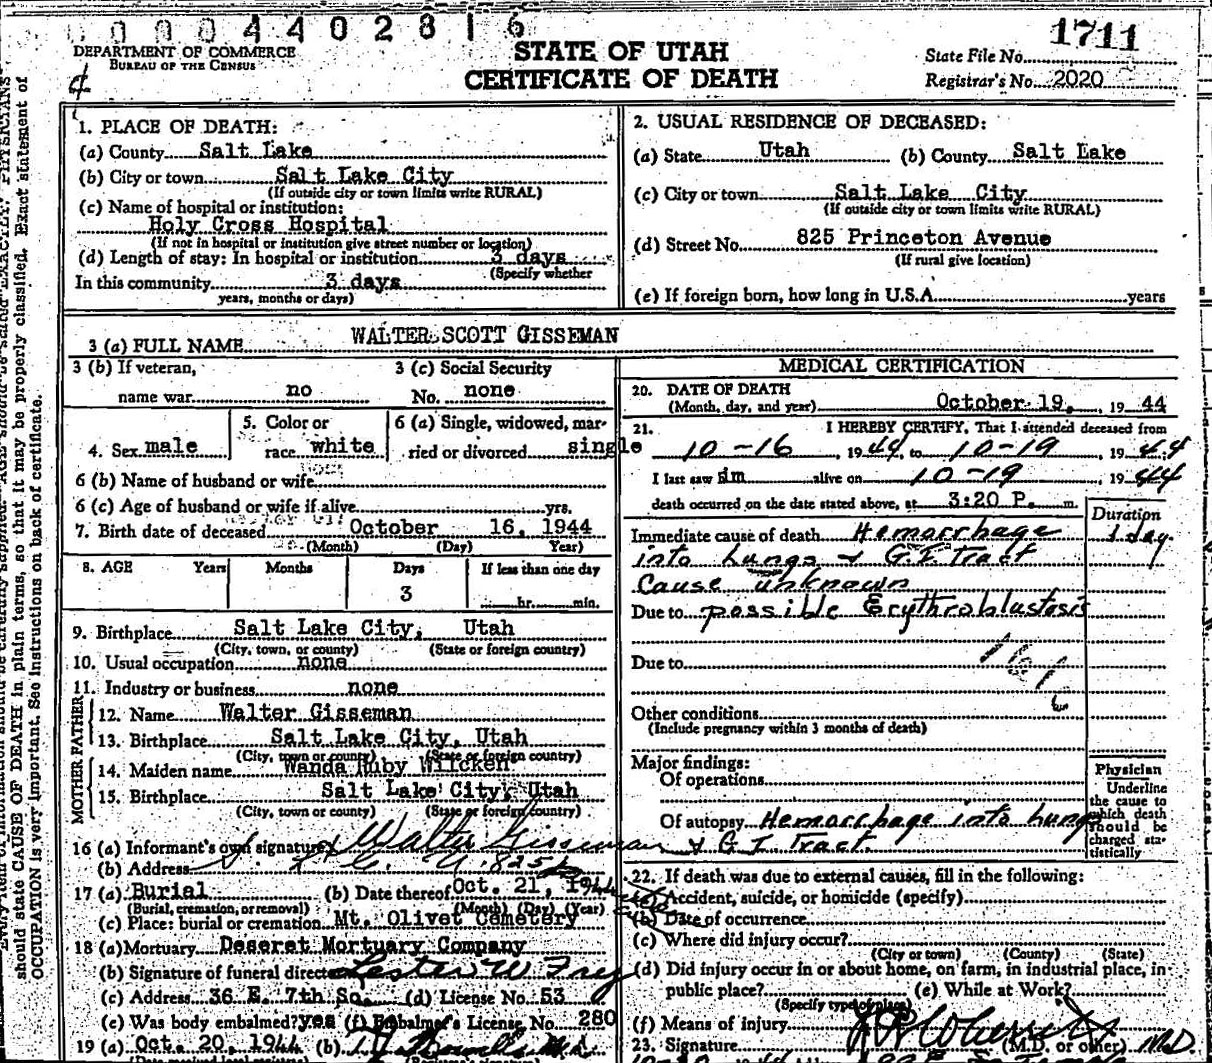 00004402816
DEPARTMENT OF COMMERCE
BUREAU OF THE CENSUS
STATE OF UTAH
CERTIFICATE OF DEATH
State File No. 1711
Registrar's No. 2020
1. PLACE OF DEATH:
(a) County Salt Lake
(b) City or town Salt Lake City
(If outside city or town limits write RURAL)
(c) Name of hospital or institution:
Holy Cross Hospital
(If not in hospital or institution give street number or location)
(d) Length of stay: In hospital or institution 3 days
(Specify whether
In this community 3 days
years, months or days)
2. USUAL RESIDENCE OF DECEASED:
(a) State Utah (b) County Salt Lake
(c) City or town Salt Lake City
(If outside city or town limits write RURAL)
(d) Street No. 825 Princeton Avenue
(If rural give location)
(e) If foreign born, how long in U.S.A. years
3 (a) FULL NAME WALTER SCOTT GISSEMAN
3 (b) If veteran, name war no
3 (c) Social Security No. none
4. Sex male
5. Color or race white
6 (a) Single, widowed, married or divorced single
6 (b) Name of husband or wife
6 (c) Age of husband or wife if alive yrs.
7. Birth date of deceased October 16, 1944
(Month) (Day) Year)
8. AGE Years Months Days If less than one day
3 hr. min.
9. Birthplace Salt Lake City, Utah
(City, town, or county) (State or foreign country)
10. Usual occupation none
11. Industry or business none
FATHER
12. Name Walter Gisseman
13. Birthplace Salt Lake City, Utah
(City, town or county) (State or foreign country)
MOTHER
14. Maiden name Wanda Ruby Wilcken
15. Birthplace Salt Lake City, Utah
(City, town or county) (State or foreign country)
16 (a) Informant's own signature Walter Gisseman
(b) Address
17 (a) Burial (b) Date thereof Oct. 21, 1944
(Burial, cremation, or removal) (Month) (Day) (Year)
(c) Place: burial or cremation Mt. Olivet Cemetery
18 (a) Mortuary Deseret Mortuary Company
(b) Signature of funeral director Lester W Frey
(c) Address 36 E. 7th So. (d) License No. 53
(e) Was body embalmed? yes (f) Embalmer's License No. 280
19 (a) Oct. 20, 1944 (b)
MEDICAL CERTIFICATION
20. DATE OF DEATH
(Month, day, and year) October 19, 19 44
21. I HEREBY CERTIFY, That I attended deceased from
10-16, 1944, to 10-19 1944
I last saw him alive on 10-19, 1944
death occurred on the date stated above, at 3:20 P. m.
Duration
Immediate cause of death Hemorrhage 1 day
into Lungs & G.I. Tract
Cause unknown
Due to possible Erythroblastosis
Due to
Other conditions
(Include pregnancy within 3 months of death)
Major findings:
Of operations
Of autopsy Hemorrhage into lung
& G I Tract.
Physician
Underline
the cause to
which death
should be
charged sta-
tistically
22. If death was due to external causes, fill in the following:
(a) Accident, suicide, or homicide (specify)
(b) Date of occurrence
(c) Where did injury occur?
(City or town) (County) (State)
(d) Did injury occur in or about home, on farm, in industrial place, in
public place? (e) While at Work?
(Specify type of place)
(f) Means of injury
23. Signature (M.D. or other) MD
should state CAUSE OF DEATH in plain terms, so that it may be properly classified. Exact statement of
OCCUPATION is very important. See instructions on back of certificate.